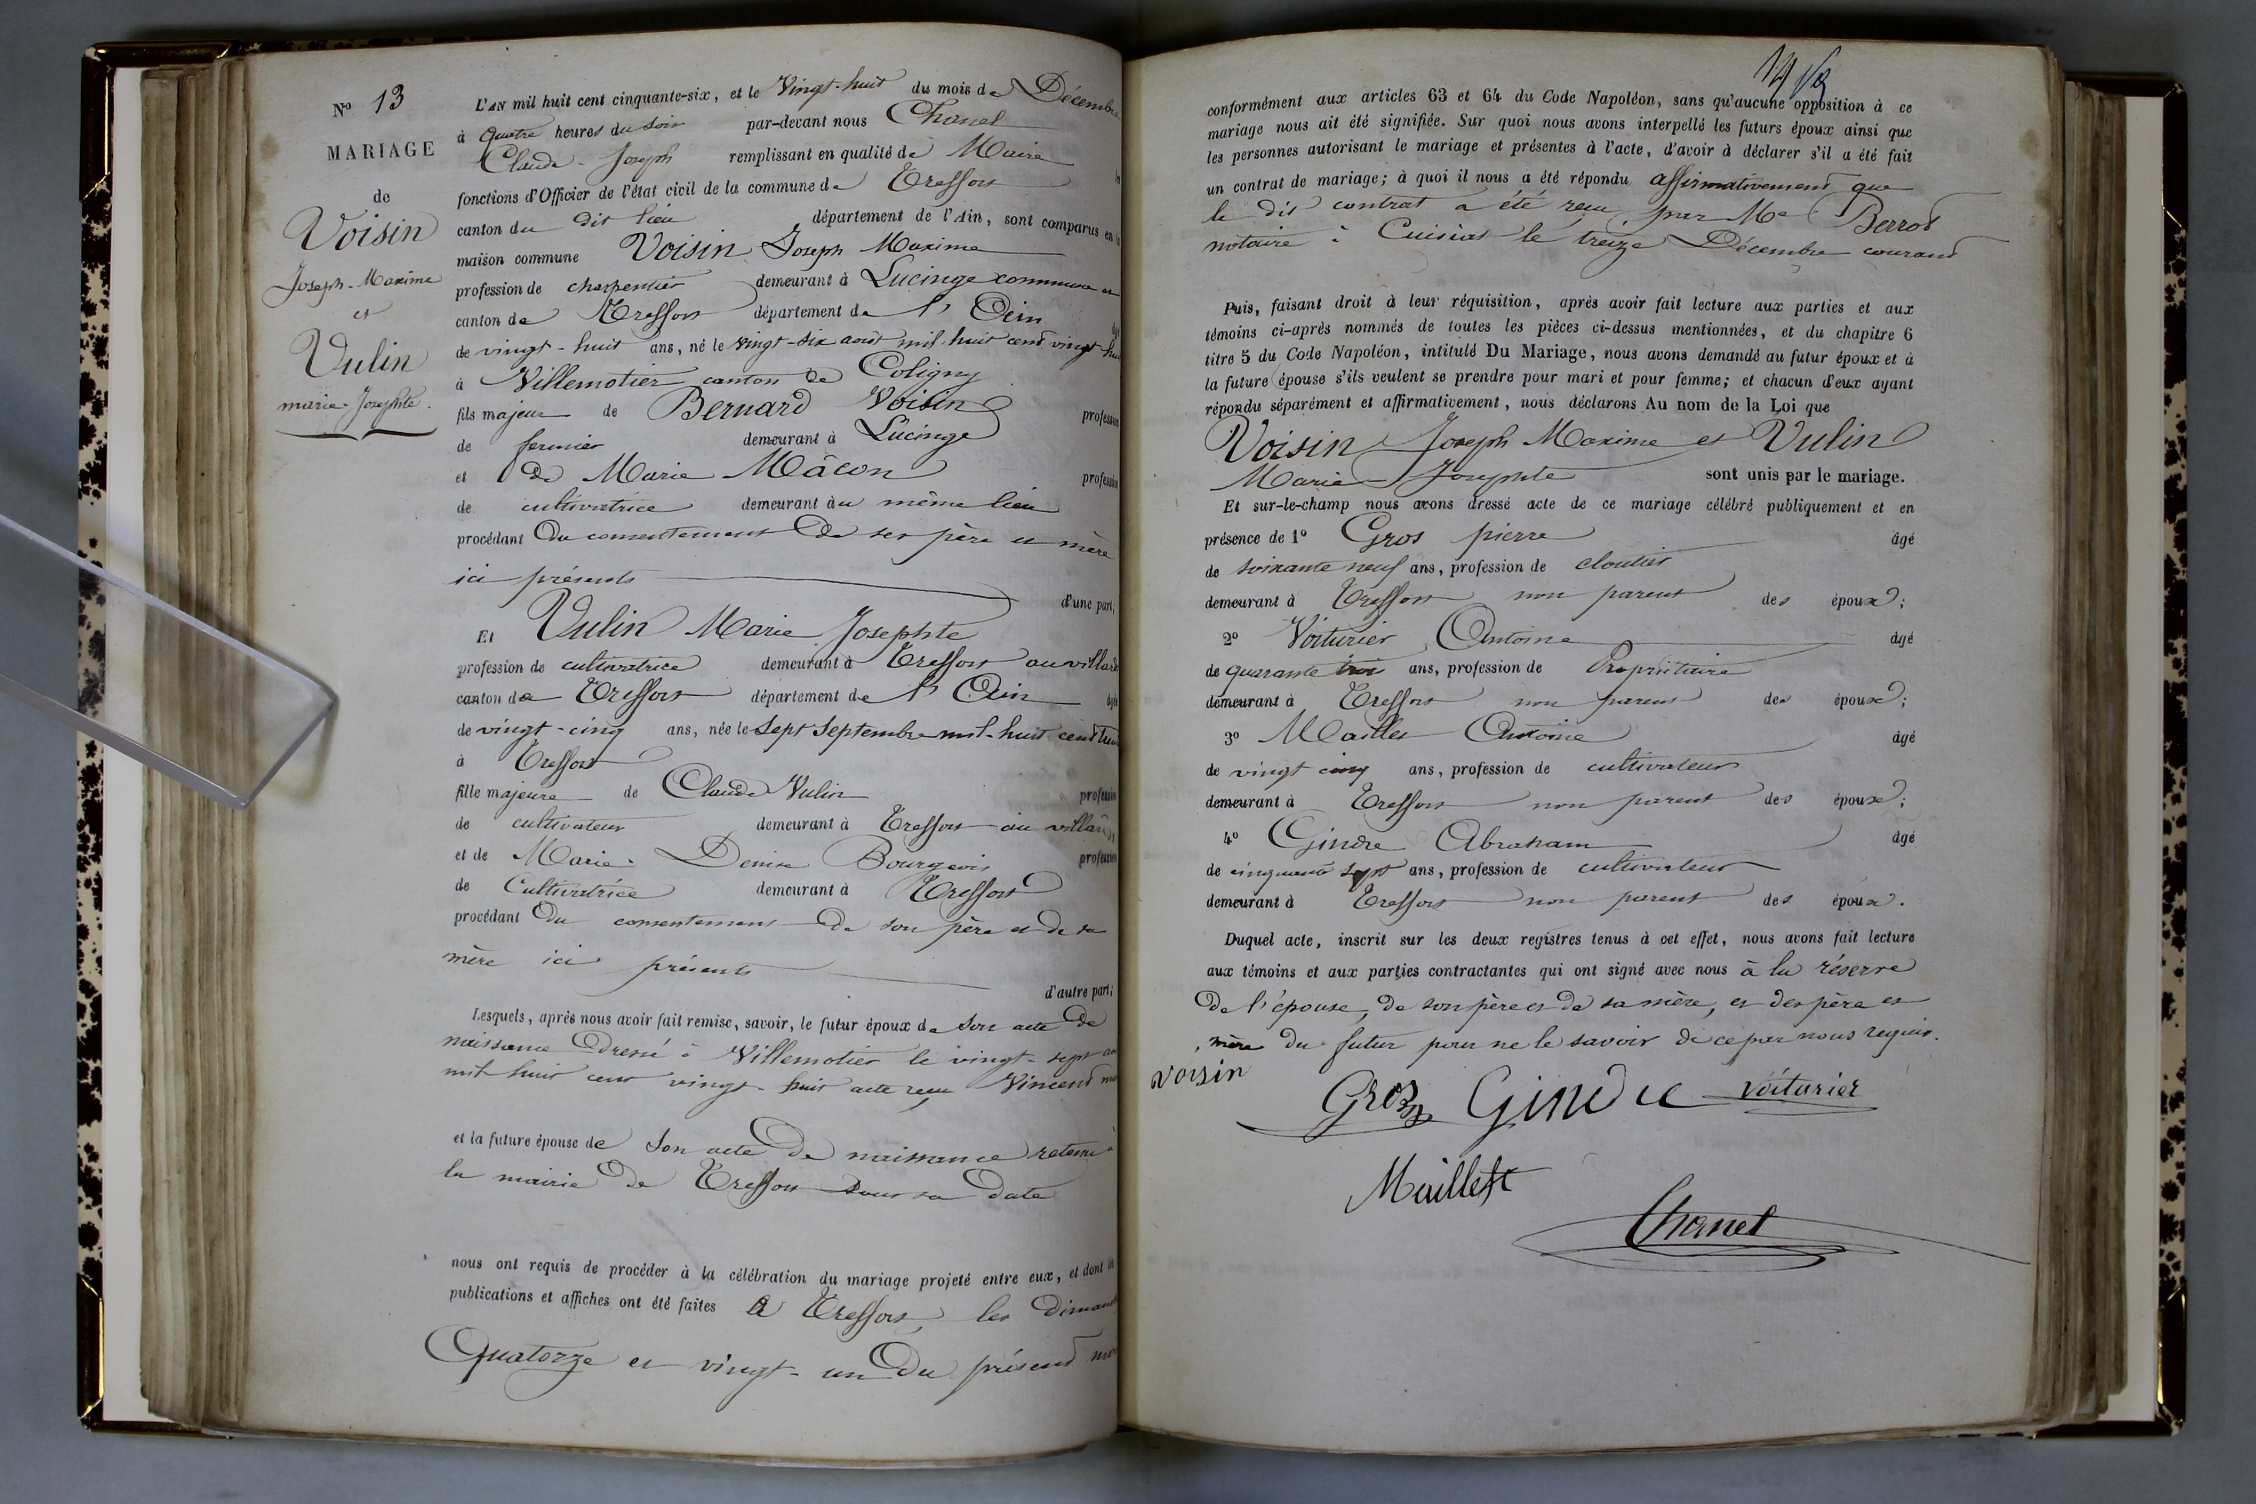 N.º 13
MARIAGE
de
Voisin
Joseph-Maxime
et
Vulin
marie-Josephte.
L'AN mil huit cent cinquante-six, et le Vingt-huit du mois de Décembre
à quatre heures du soir par-devant nous Chanel
Claude-Joseph remplissant en qualité de Maire les
fonctions d'Officier de l'état civil de la commune de Treffort
canton du dit lieu département de l'Ain, sont comparus en la
maison commune Voisin Joseph Maxime
profession de charpentier demeurant à Lucinge commune et
canton de Treffort département de l'Ain âgé
de vingt-huit ans, né le vingt-six août mil-huit cent vingt-huit
à Villemotier canton de Coligny
fils majeur de Bernard Voisin profession
de fermier demeurant à Lucinge
et de Marie Mâcon profession
de cultivatrice demeurant au même lieu
procédant Du consentement de ses père et mère
ici présents
d'une part;
Et Vulin Marie Josephte
profession de cultivatrice demeurant à Treffort au villard
canton de Treffort département de l'Ain âgée
de vingt-cinq ans, née le sept septembre mil-huit cent
à Treffort
fille majeure de Claude Vulin profession
de cultivateur demeurant à Treffort au villard
et de Marie-Denise Bourgeois profession
de Cultivatrice demeurant à Treffort
procédant Du consentement de son père et de sa
mère ici présents
d'autre part;
Lesquels, après nous avoir fait remise, savoir, le futur époux de son acte de
naissance Dressé à Villemotier le vingt-sept
mil huit cent vingt-huit acte reçu Vincent
et la future épouse de son acte De naissance retenu à
la mairie de Treffort sous sa date
nous ont requis de procéder à la célébration du mariage projeté entre eux, et dont les
publications et affiches ont été faites à Treffort, les Dimanches
Quatorze et vingt-un Du présent mois
14
conformément aux articles 63 et 64 du Code Napoléon, sans qu'aucune opposition à ce
mariage nous ait été signifiée. Sur quoi nous avons interpellé les futurs époux ainsi que
les personnes autorisant le mariage et présentes à l'acte, d'avoir à déclarer s'il a été fait
un contrat de mariage; à quoi il nous a été répondu affirmativement que
le dit contrat a été reçu par Me Berrod
notaire à Cuisiat le treize Décembre courant
Puis, faisant droit à leur réquisition, après avoir fait lecture aux parties et aux
témoins ci-après nommés de toutes les pièces ci-dessus mentionnées, et du chapitre 6
titre 5 du Code Napoléon, intitulé Du Mariage, nous avons demandé au futur époux et à
la future épouse s'ils veulent se prendre pour mari et pour femme; et chacun d'eux ayant
répondu séparément et affirmativement, nous déclarons Au nom de la Loi que
Voisin Joseph Maxime et Vulin
Marie Josephte sont unis par le mariage.
Et sur-le-champ nous avons dressé acte de ce mariage célébré publiquement et en
présence de 1º Gros pierre âgé
de soixante neuf ans, profession de cloutier
demeurant à Treffort non parent des époux;
2º Voiturier Antoine âgé
de quarante trois ans, profession de Propriétaire
demeurant à Treffort non parent des époux;
3º Maillet Antoine âgé
de vingt cinq ans, profession de cultivateur
demeurant à Treffort non parent des époux;
4º Gindre Abraham âgé
de cinquante sept ans, profession de cultivateur
demeurant à Treffort non parent des époux.
Duquel acte, inscrit sur les deux registres tenus à cet effet, nous avons fait lecture
aux témoins et aux parties contractantes qui ont signé avec nous à la réserve
De l'épouse, de son père et de sa mère, et des père et
mère du futur pour ne le savoir de ce par nous requis.
Voisin
Gros Gindre Voiturier
Maillet
Chanel